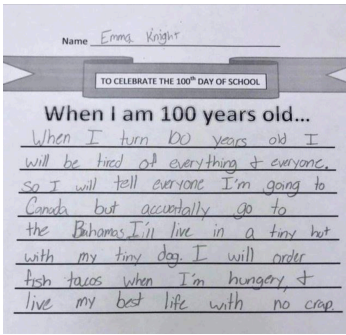 Name Emma Knight
TO CELEBRATE THE 100th DAY OF SCHOOL
When I am 100 years old...
When I turn 100 years old I
will be tired of everything & everyone.
so I will tell everyone I'm going to
Canada but accuatally go to
the Bahamas I'll live in a tiny hut
with my tiny dog. I will order
fish tacos when I'm hungery, &
live my best life with no crap